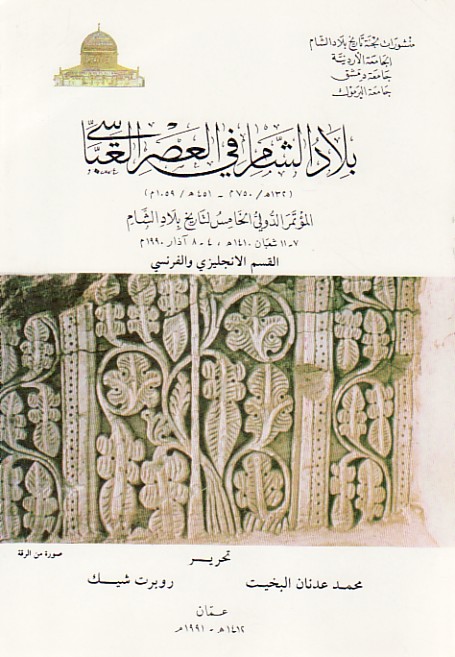 منشورات لجنة تاريخ بلاد الشام
الجامعة الأردنية
جامعة دمشق
جامعة اليرموك
بلاد الشام في العصر العباسي
(١٣٢هـ/٧٥٠م - ٤٥١هـ/١٠٥٩م)
المؤتمر الدولي الخامس لتاريخ بلاد الشام
٧-١١ شعبان ١٤١٠هـ ، ٤-٨ آذار ١٩٩٠م
القسم الانجليزي والفرنسي
صورة من الرقة
تحرير
محمد عدنان البخيت روبرت شيك
عمّان
١٤١٢هـ - ١٩٩١م